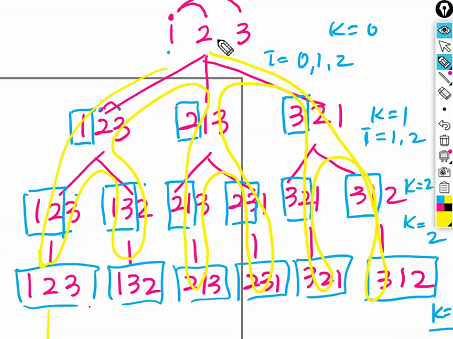 1 2 3 K=0
I=0,1,2
123 213 321 K=1
I=1,2
123 132 213 231 321 312 K=2
K=
2
123 132 213 231 321 312
K=